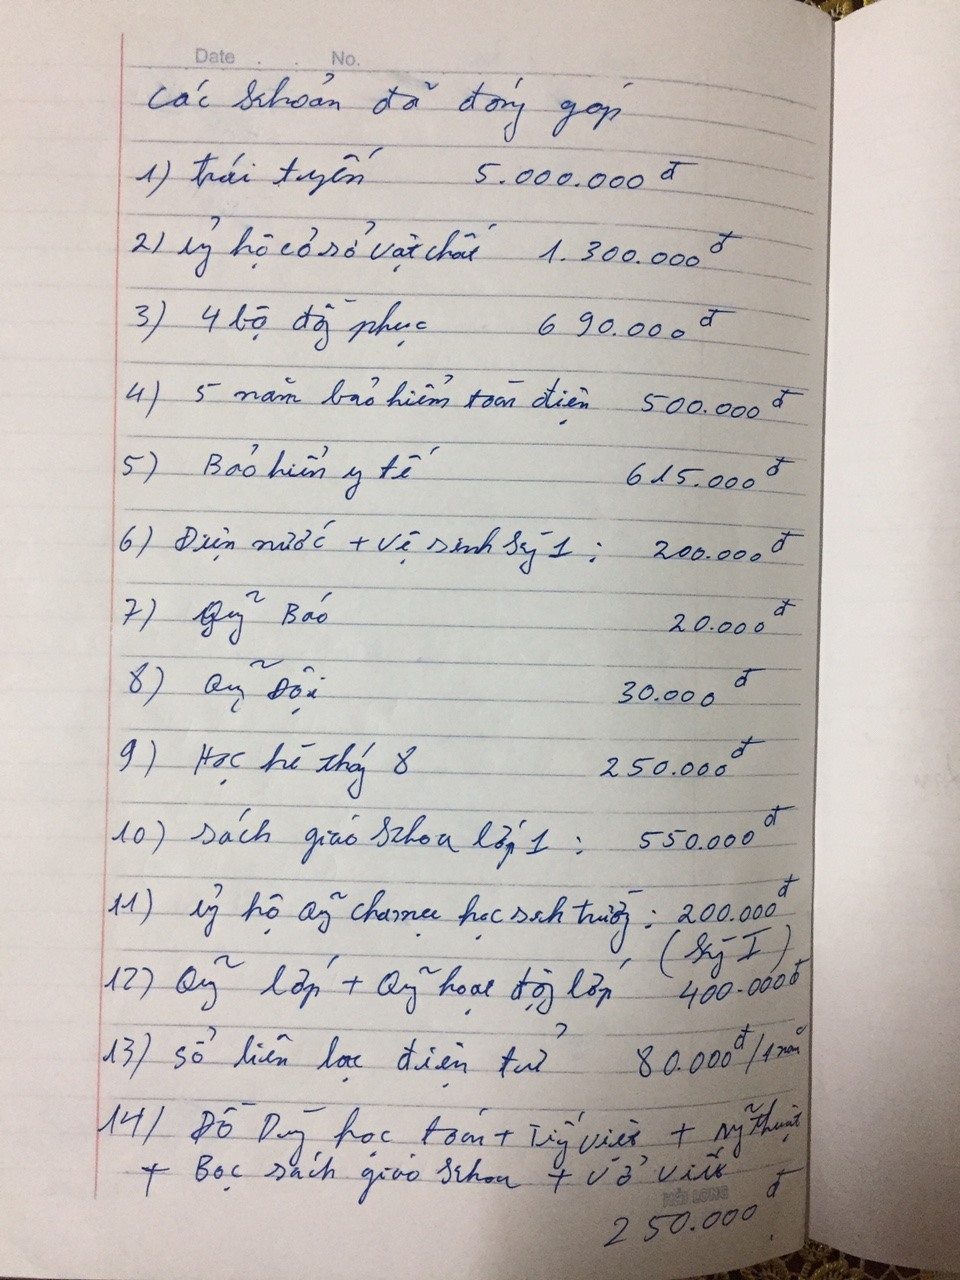 Date . . No.
Các khoản đã đóng góp
1) trái tuyến 5.000.000đ
2) ủy hộ cở sở vật chất 1.300.000đ
3) 4 bộ đồ phục 690.000đ
4) 5 năm bảo hiểm toàn diện 500.000đ
5) Bảo hiển y tế 615.000đ
6) Điện nước + Vệ sinh kỳ 1 : 200.000đ
7) Quỹ Báo 20.000đ
8) Quỹ Đội 30.000đ
9) Học hè tháng 8 250.000đ
10) sách giáo khoa lớp 1 : 550.000đ
11) ủy hộ Quỹ cha mẹ học sinh trường : 200.000đ
(kỳ I)
12) Quỹ lớp + Quỹ hoạt động lớp 400.000đ
13) sổ liên lạc điện tử 80.000đ/1 năm
14) Đồ Dùng học toán + Tiếng việt + Mỹ thuật
+ Bọc sách giáo khoa + Vở viết
HẢI LONG
250.000đ